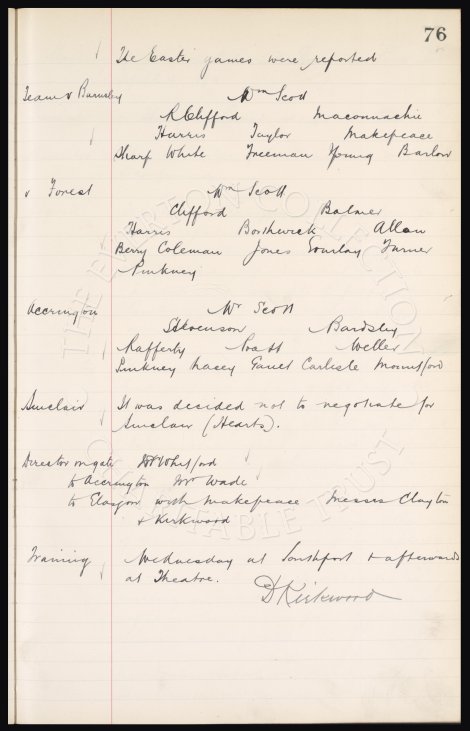 76
The Easter games were reported
Team v Barnsley Wm Scott
R Clifford Maconnachie
Harris Taylor Makepeace
Sharp White Freeman Young Barlow
v Forest Wm Scott
Clifford Balmer
Harris Borthwick Allan
Berry Coleman Jones Gourlay Turner
Pinkney
Accrington Wr Scott
Stevenson Bardsley
Rafferty Pratt Weller
Pinkney Lacey Gault Carlisle Mountford
Sinclair It was decided not to negotiate for
Sinclair (Hearts).
Director on gate Dr Whitford
to Accrington Mr Wade
to Glasgow with Makepeace Messrs Clayton
& Kirkwood
Training Wednesday at Southport & afterwards
at Theatre.
D Kirkwood
THE EVERTON COLLECTION
CHARITABLE TRUST